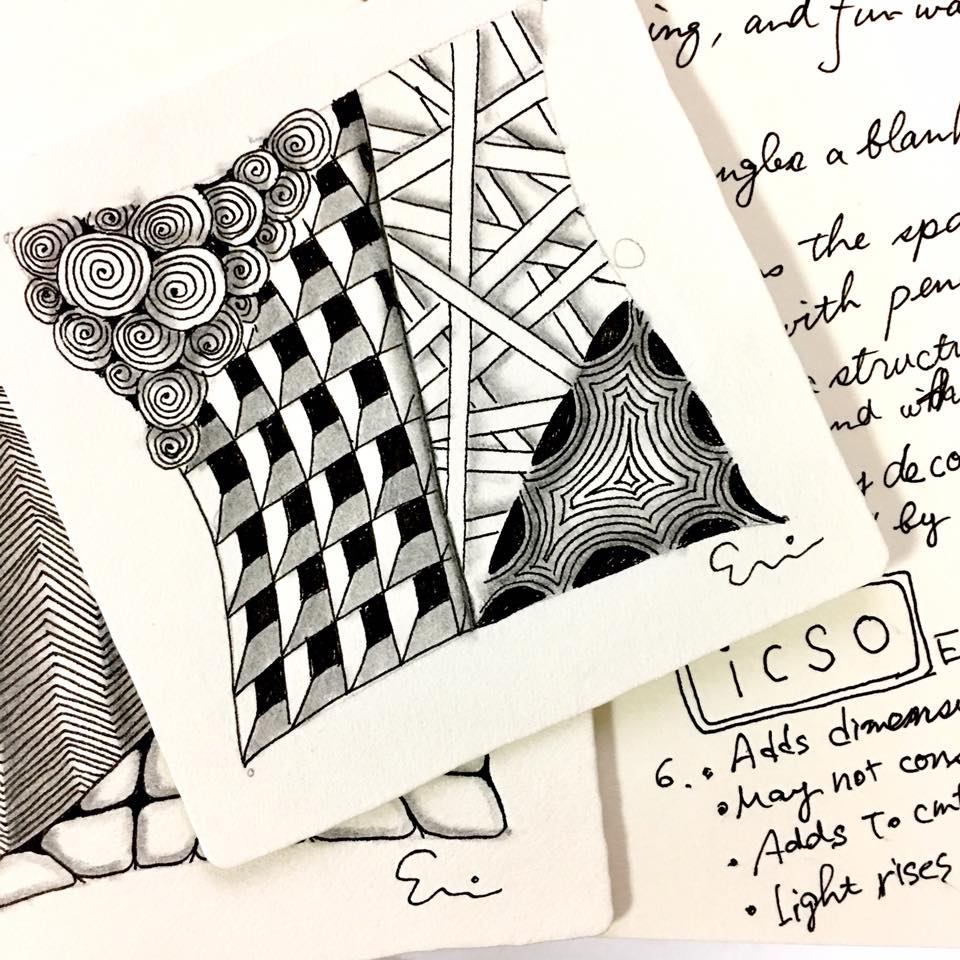 ing, and fun wa
ngles a blank
s the spa
with pen
structu
nd with
decc
by
Eni
icso
E
6. • Adds dimens
• May not cons
• Adds To cnt
• Light rises
Eni